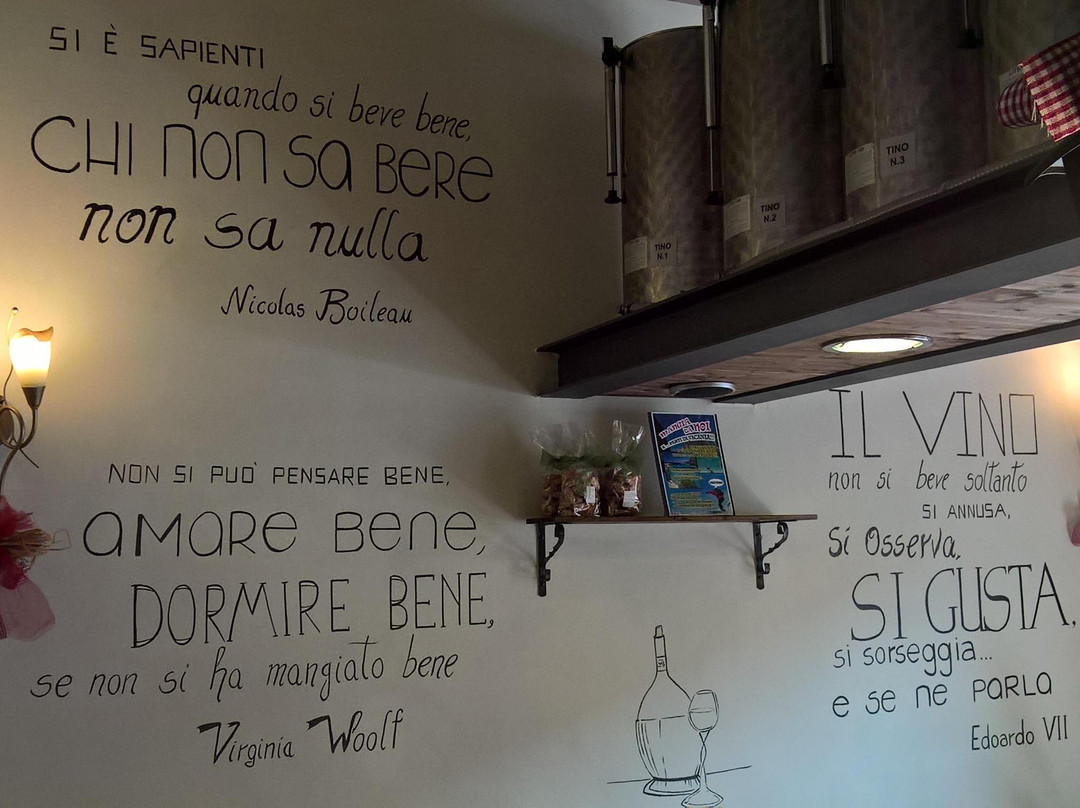 SI È SAPIENTI
quando si beve bene,
CHI NON SA BERE
non sa nulla
Nicolas Boileau
NON SI PUÒ PENSARE BENE,
AMARE BENE,
DORMIRE BENE,
se non si ha mangiato bene
Virginia Woolf
TINO
N.1
TINO
N.2
TINO
N.3
IL VINO
non si beve soltanto
SI ANNUSA,
Si Osserva,
SI GUSTA,
si sorseggia...
e se ne PARLA
Edoardo VII